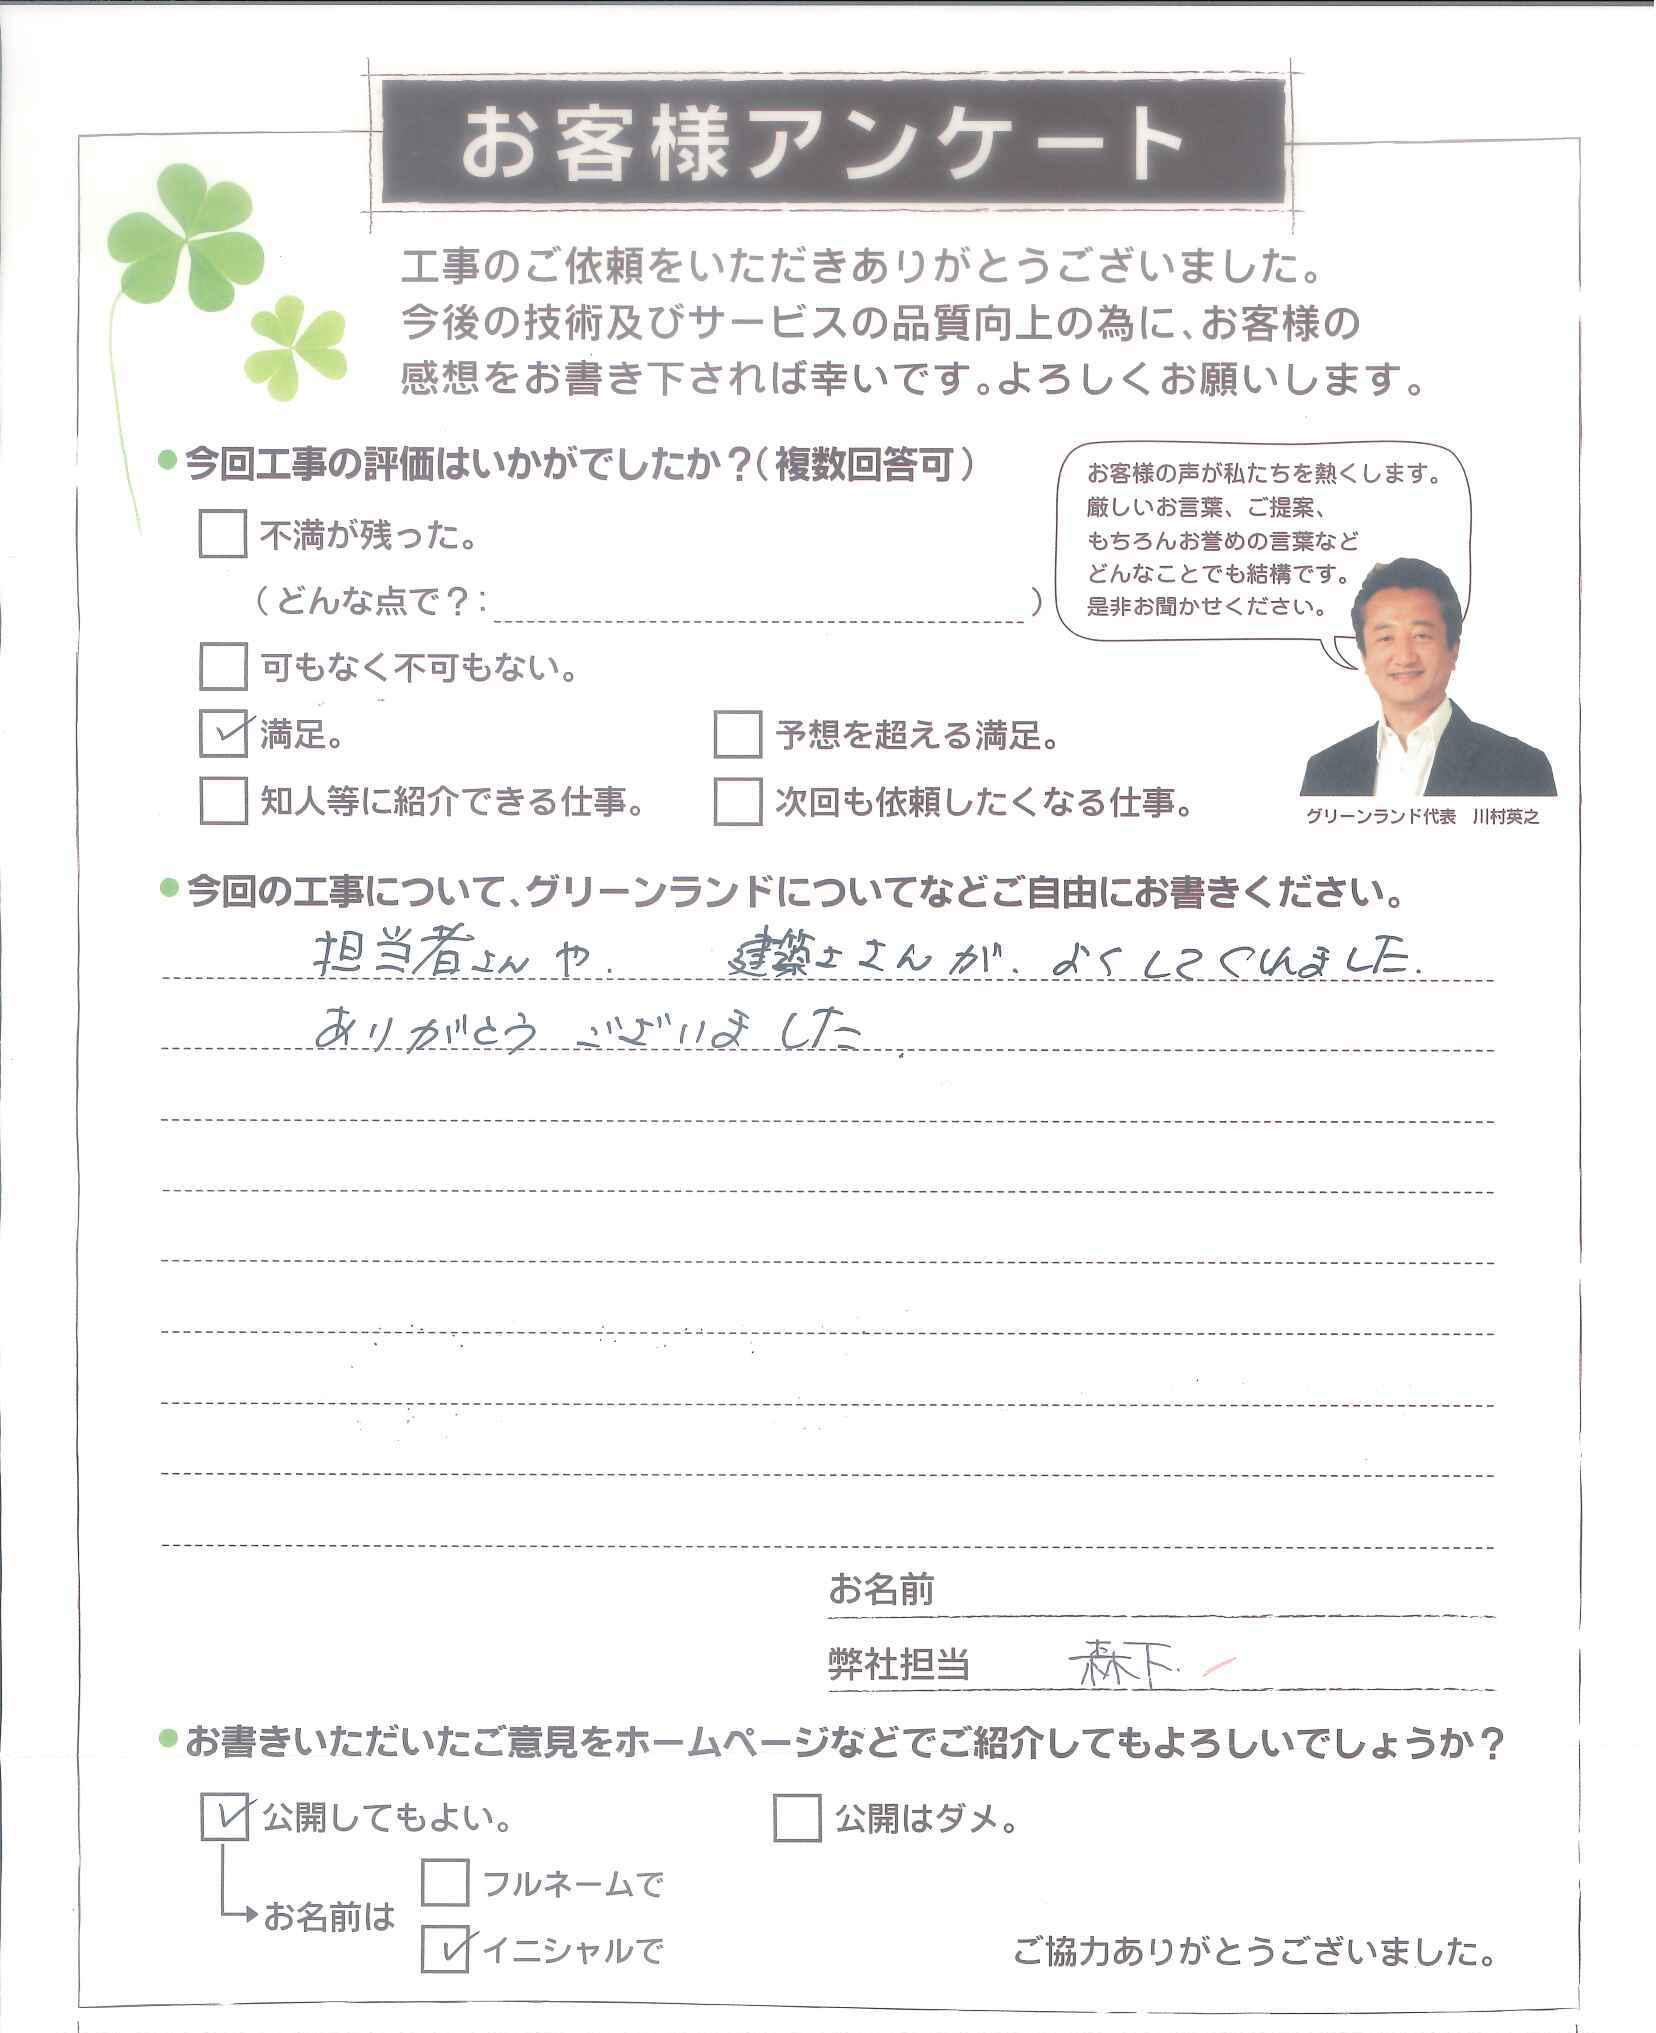 お客様アンケート
工事のご依頼をいただきありがとうございました。
今後の技術及びサービスの品質向上の為に、お客様の
感想をお書き下されば幸いです。よろしくお願いします。
今回工事の評価はいかがでしたか？（複数回答可）
お客様の声が私たちを熱くします。
厳しいお言葉、ご提案、
もちろんお誉めの言葉など
どんなことでも結構です。
是非お聞かせください。
グリーンランド代表 川村英之
不満が残った。
（どんな点で？： ）
可もなく不可もない。
満足。 予想を超える満足。
知人等に紹介できる仕事。 次回も依頼したくなる仕事。
今回の工事について、グリーンランドについてなどご自由にお書きください。
担当者さんや、 建築士さんが、よくしてくれました.
ありがとうございました.
お名前
弊社担当 森下.
お書きいただいたご意見をホームページなどでご紹介してもよろしいでしょうか？
公開してもよい。 公開はダメ。
お名前は フルネームで
イニシャルで
ご協力ありがとうございました。